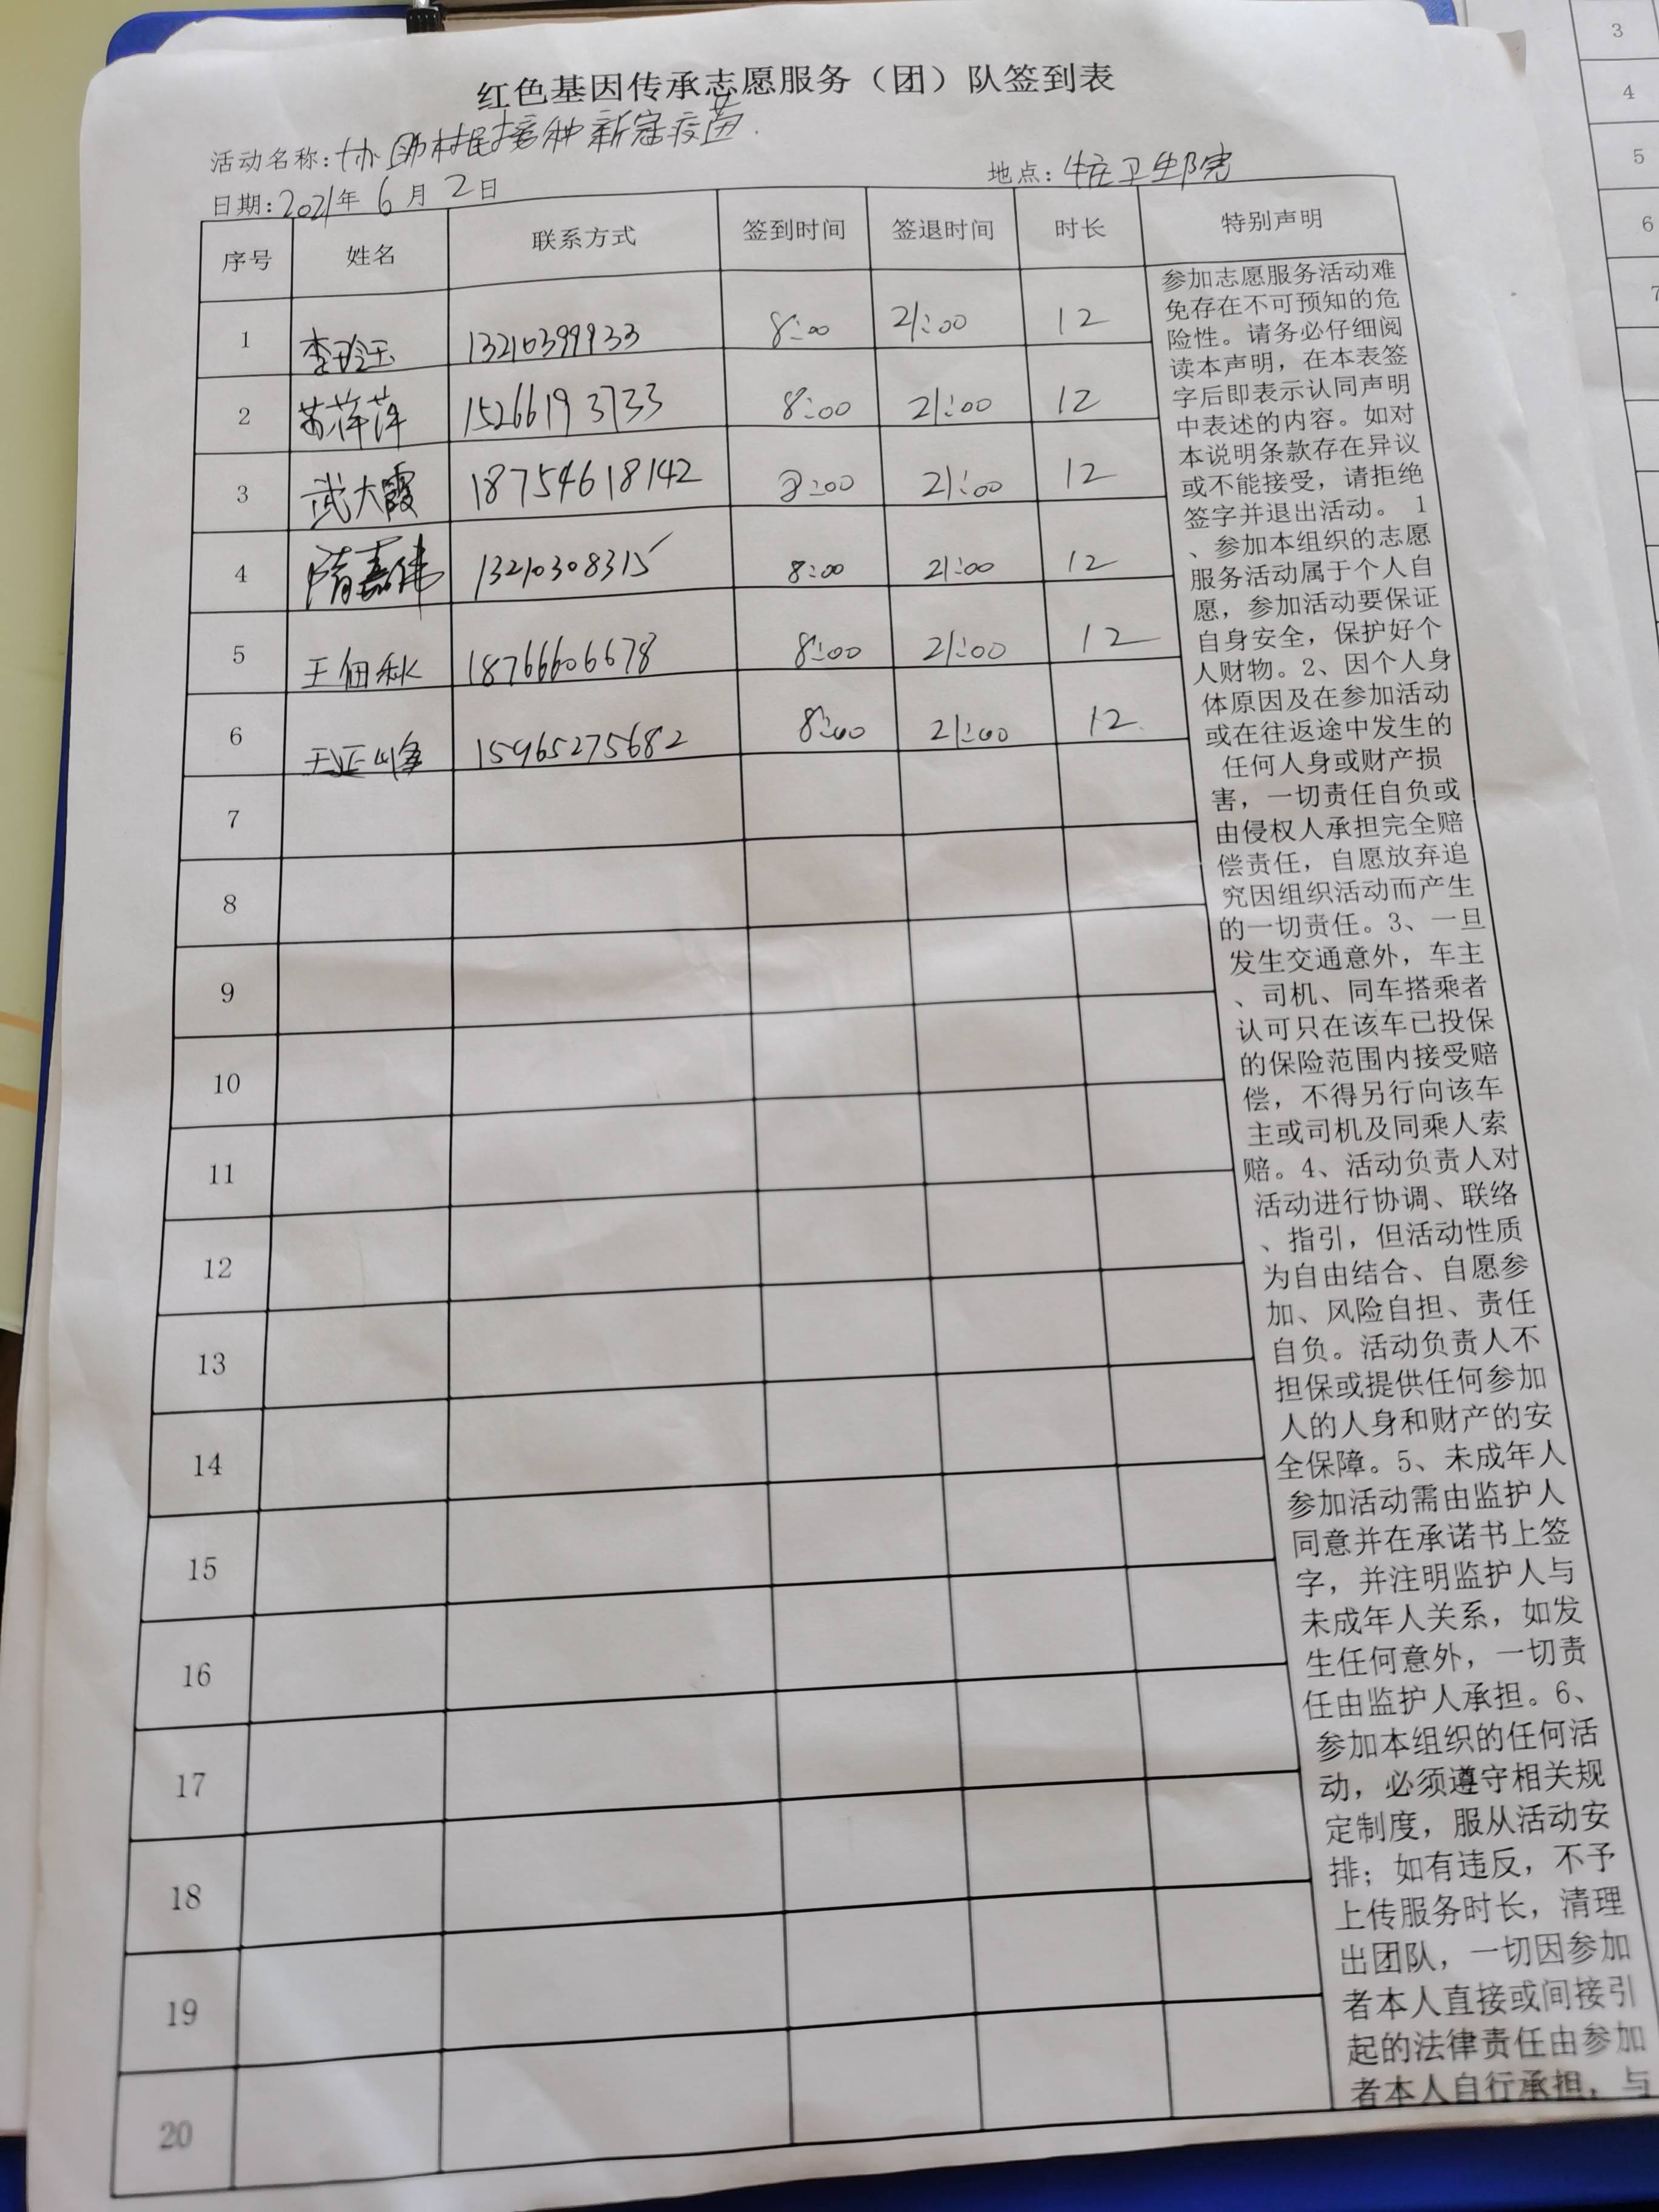 红色基因传承志愿服务（团）队签到表
活动名称：协助村民接种新冠疫苗.
日期：2021年6月2日 地点：卫生院
序号 姓名 联系方式 签到时间 签退时间 时长 特别声明
1 李玲玉 13210399933 8:00 21:00 12
2 苏萍萍 15266193733 8:00 21:00 12
3 武大霞 18754618142 8:00 21:00 12
4 隋嘉伟 13210308315 8:00 21:00 12
5 王佃秋 18766606678 8:00 21:00 12
6 王亚峰 15965275682 8:00 21:00 12
7
8
9
10
11
12
13
14
15
16
17
18
19
20
参加志愿服务活动难
免存在不可预知的危
险性。请务必仔细阅
读本声明，在本表签
字后即表示认同声明
中表述的内容。如对
本说明条款存在异议
或不能接受，请拒绝
签字并退出活动。 1
、参加本组织的志愿
服务活动属于个人自
愿，参加活动要保证
自身安全，保护好个
人财物。2、因个人身
体原因及在参加活动
或在往返途中发生的
任何人身或财产损
害，一切责任自负或
由侵权人承担完全赔
偿责任，自愿放弃追
究因组织活动而产生
的一切责任。3、一旦
发生交通意外，车主
、司机、同车搭乘者
认可只在该车已投保
的保险范围内接受赔
偿，不得另行向该车
主或司机及同乘人索
赔。4、活动负责人对
活动进行协调、联络
、指引，但活动性质
为自由结合、自愿参
加、风险自担、责任
自负。活动负责人不
担保或提供任何参加
人的人身和财产的安
全保障。5、未成年人
参加活动需由监护人
同意并在承诺书上签
字，并注明监护人与
未成年人关系，如发
生任何意外，一切责
任由监护人承担。6、
参加本组织的任何活
动，必须遵守相关规
定制度，服从活动安
排；如有违反，不予
上传服务时长，清理
出团队，一切因参加
者本人直接或间接引
起的法律责任由参加
者本人自行承担，与
3
4
5
6
7